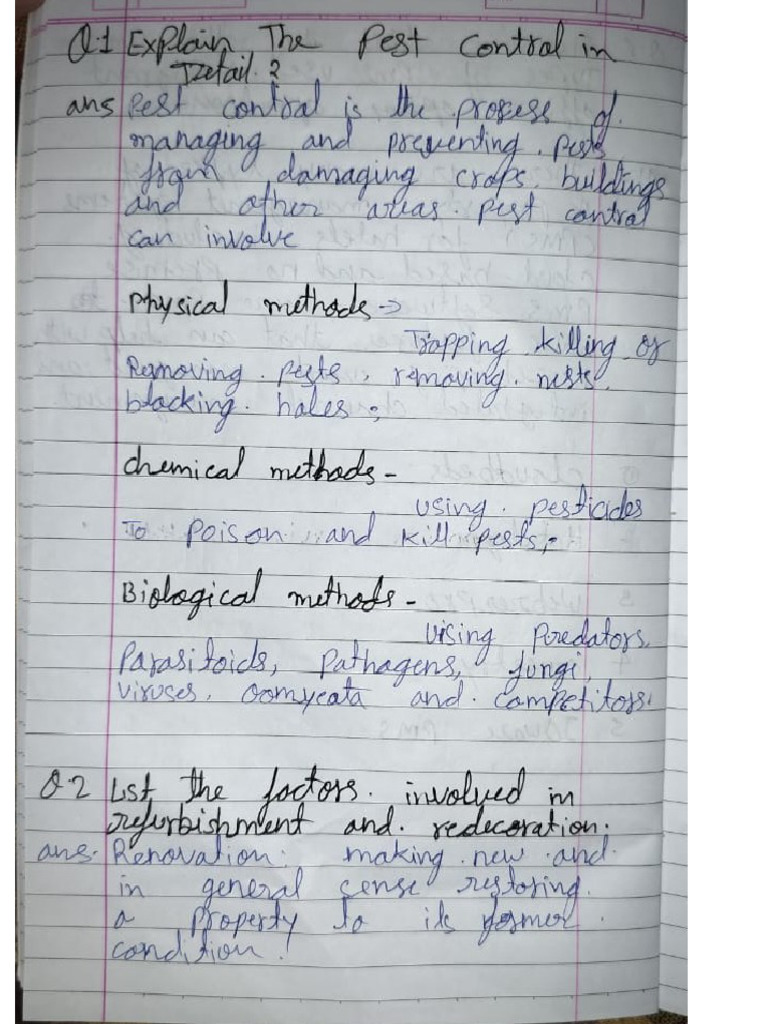 Q.1 Explain The Pest Control in
Detail.?
ans Pest control is the process of
managing and preventing pests
from damaging crops. buildings
and other areas. pest control
can involve
Physical methods →
Trapping killing or
Removing. pests, removing. nests
blocking. holes,
chemical methods -
using. pesticides
To Poison and kill pests,
Biological methods -
Using Predators,
Parasitoids, Pathogens, fungi,
viruses, oomycota and competitors.
Q.2 List the factors. involved in
refurbishment and. redecoration.
ans. Renovation: making new and.
in general sense restoring.
a property to its former.
condition.